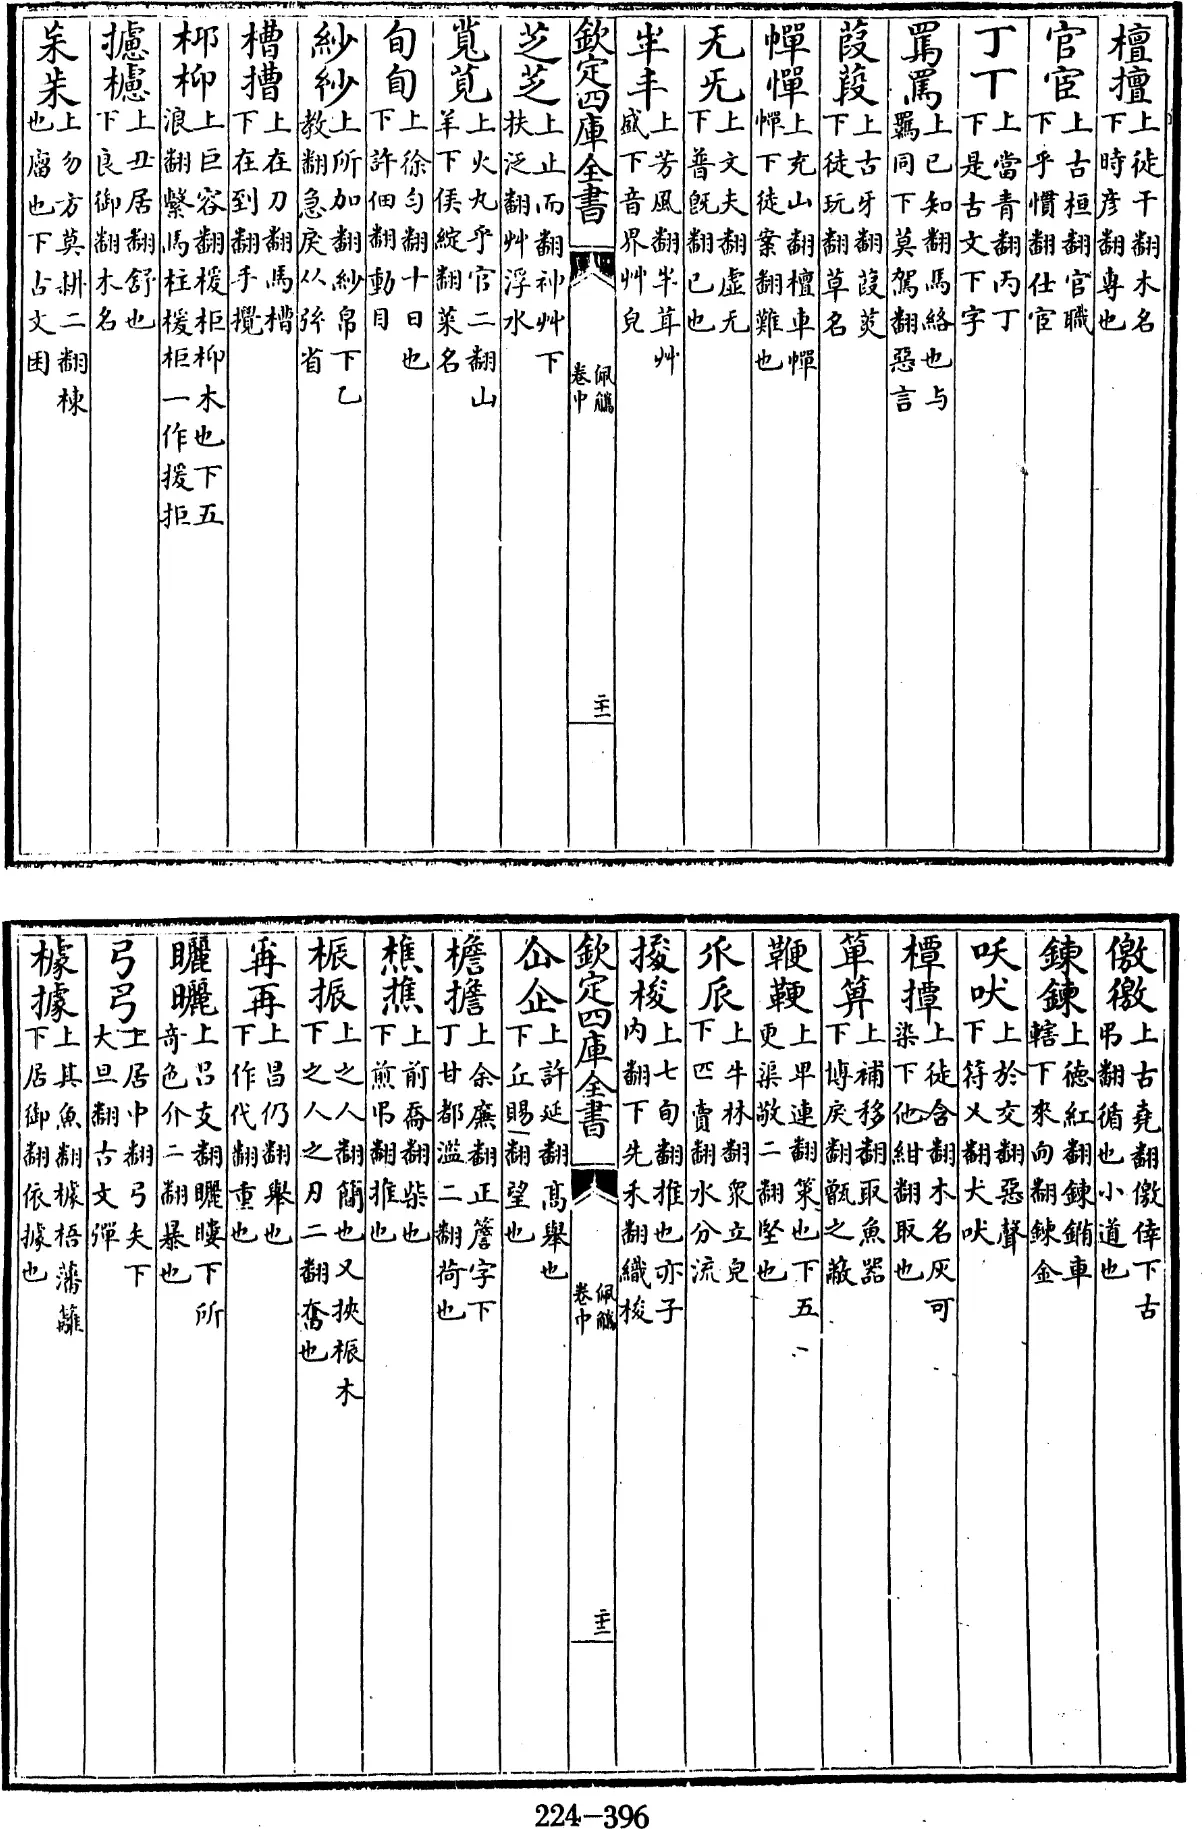 檀擅上徒干翻木名下時彦翻專也
官宦上古桓翻官職下乎慣翻仕宦
丁丅上當青翻丙丁下是古文下字
罵上已知翻馬絡也与羈同下莫駕翻惡言
葭葮上古牙翻葭莢下徒玩翻草名
幝憚上充山翻檀車幝幝下徒案翻難也
无旡上文夫翻虛无下普旣翻已也
丰上芳風翻丰茸艸盛下音界艸皃
芝芝上止而翻神艸下扶泛翻艸浮水
莧上火丸乎官二翻山羊下侯綻翻菜名
旬上徐勻翻十日也下許佃翻動目
紗上所加翻紗帛下乙教翻急戾从弦省
槽擂上在刀翻馬槽下在到翻手攪
枊上巨容翻椶柜枊木也下五浪翻繫馬柱椶柜一作援拒
上勿方莫耕二翻棟也廇也下古文困
攄櫖上丑居翻舒也下良御翻木名
欽定四庫全書
佩觿
卷中
二十一
儌徼上古堯翻儌倖下古弔翻循也小道也
鍊上德紅翻鍊鐗車轄下來向翻鍊金
吠上於交翻惡聲下符乂翻犬吠
橝撢上徒含翻木名灰可染下他紺翻取也
箄算上補移翻取魚器下博戾翻甑之蔽
鞭鞕上卑連翻策也下五更渠敬二翻堅也
𠂢上牛林翻衆立皃下匹賣翻水分流
捘梭上七旬翻推也亦子内翻下先禾翻織梭
仚企上許延翻高舉也下丘賜翻望也
檐擔上余廉翻正簷字下丁甘都濫二翻荷也
樵撨上前喬翻柴也下煎弔翻推也
桭振上之人翻簡也又挾桭木下之人之刃二翻奮也
再上昌仍翻舉也下作代翻重也
曬上呂支翻曬䁖下所奇色介二翻暴也
弓上居中翻弓矢下大旦翻古文彈
椐據上其魚翻據梧藩籬下居御翻依據也
欽定四庫全書
佩觿
卷中
二十二
224-396